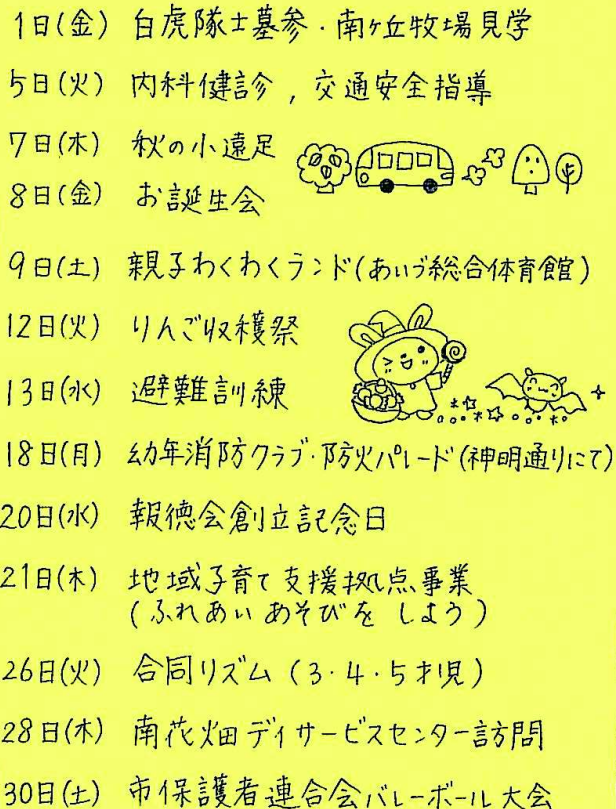 1日(金) 白虎隊士墓参・南ヶ丘牧場見学
5日(火) 内科健診，交通安全指導
7日(木) 秋の小遠足
8日(金) お誕生会
9日(土) 親子わくわくランド(あいづ総合体育館)
12日(火) りんご収穫祭
13日(水) 避難訓練
18日(月) 幼年消防クラブ・防火パレード(神明通りにて)
20日(水) 報徳会創立記念日
21日(木) 地域子育て支援拠点事業
(ふれあいあそびをしよう)
26日(火) 合同リズム(3・4・5才児)
28日(木) 南花畑デイサービスセンター訪問
30日(土) 市保護者連合会バレーボール大会